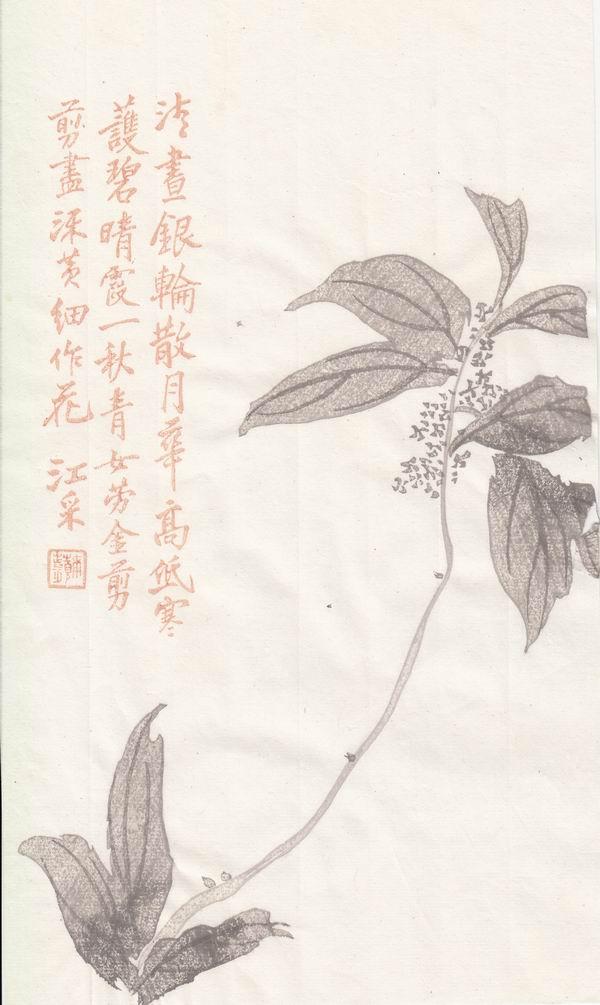 晝銀輪散月華高低寒
護碧晴霞一秋青女劳金剪
剪盡深黄細作花 江采